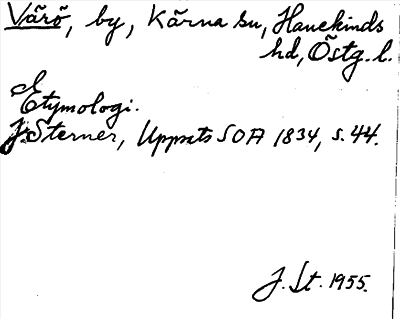 Värö, by, Kärna su, Hanekinds
hd, Östg. l.
Etymologi.
J. Sterner, Uppsats SOA 1834, s. 44.
J. St. 1955.